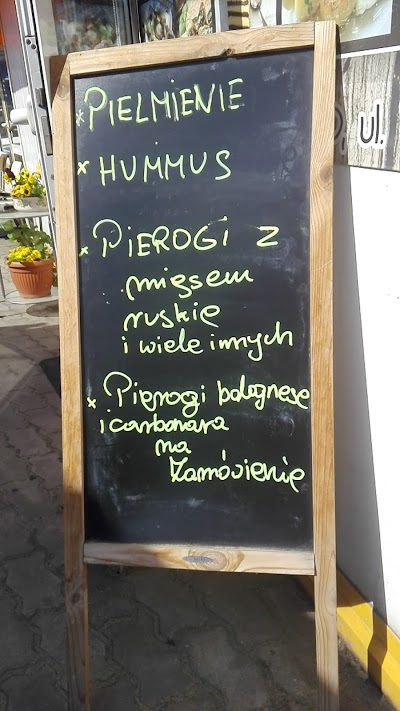 * PIELMIENIE
* HUMMUS
* PIEROGI Z
mięsem
ruskie
i wiele innych
* Pierogi bolognese
i carbonara
na
Zamówienie
ul.